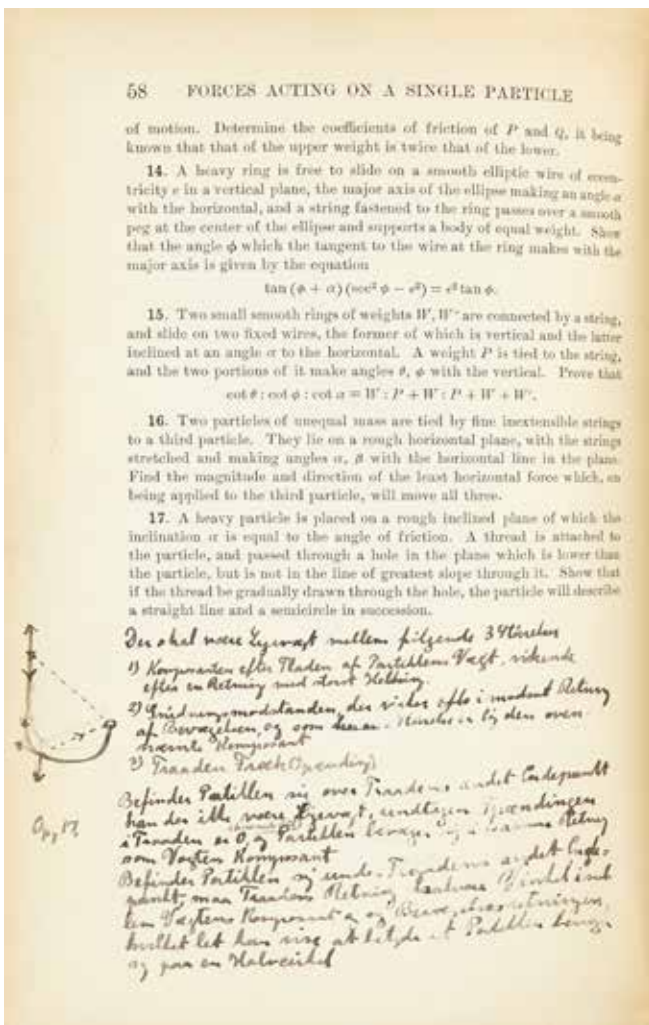 58 FORCES ACTING ON A SINGLE PARTICLE
of motion. Determine the coefficients of friction of P and Q, it being
known that that of the upper weight is twice that of the lower.
14. A heavy ring is free to slide on a smooth elliptic wire of eccen-
tricity e in a vertical plane, the major axis of the ellipse making an angle α
with the horizontal, and a string fastened to the ring passes over a smooth
peg at the center of the ellipse and supports a body of equal weight. Show
that the angle ϕ which the tangent to the wire at the ring makes with the
major axis is given by the equation
tan (ϕ + α) (sec² ϕ − e²) = e² tan ϕ.
15. Two small smooth rings of weights W, W′ are connected by a string,
and slide on two fixed wires, the former of which is vertical and the latter
inclined at an angle α to the horizontal. A weight P is tied to the string,
and the two portions of it make angles θ, ϕ with the vertical. Prove that
cot θ : cot ϕ : cot α = W : P + W : P + W + W′.
16. Two particles of unequal mass are tied by fine inextensible strings
to a third particle. They lie on a rough horizontal plane, with the strings
stretched and making angles α, β with the horizontal line in the plane.
Find the magnitude and direction of the least horizontal force which, on
being applied to the third particle, will move all three.
17. A heavy particle is placed on a rough inclined plane of which the
inclination α is equal to the angle of friction. A thread is attached to
the particle, and passed through a hole in the plane which is lower than
the particle, but is not in the line of greatest slope through it. Show that
if the thread be gradually drawn through the hole, the particle will describe
a straight line and a semicircle in succession.
Der skal være Ligevægt mellem følgende 3 Størrelser
1) Komposanten efter Pladen af Partiklens Vægt, virkende
efter en Retning med størst Hældning.
2) Gnidningsmodstanden, der virker i modsat Retning
af Bevægelsen, og som den oven-
nævnte Komposant
3) Traadens Træk (Spænding)
Befinder Partiklen sig over Traadens andet Endepunkt
kan der ikke være Ligevægt, undtagen Spændingen
i Traaden er 0, og Partiklen bevæger sig i samme Retning
som Vægtens Komposant
Befinder Partiklen sig under Traadens andet Ende-
punkt, maa Traadens Retning Vinklen imel-
lem Vægtens Komposant og Bevægelsesretningen,
hvilket let kan vise at Partiklen bevæger
sig paa en Halvcirkel